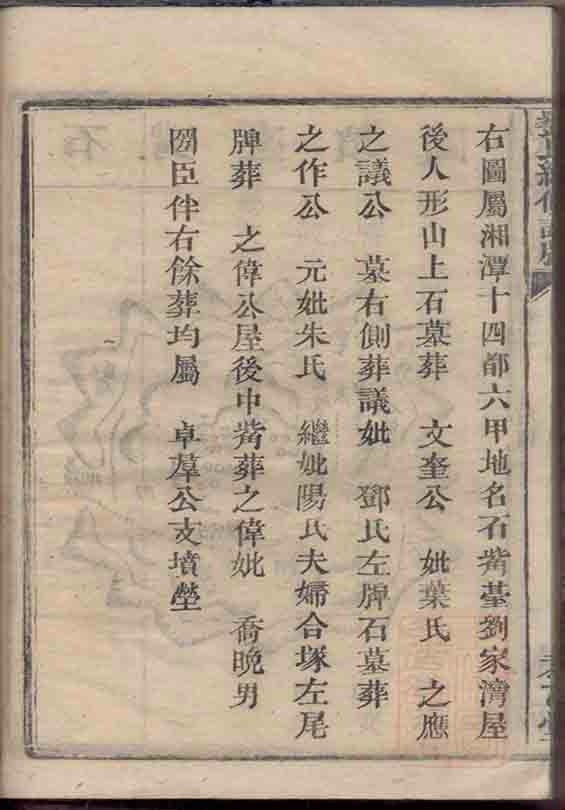 右圖屬湘潭十四都六甲地名石觜臺劉家灣屋
後人形山上石墓葬 文奎公 妣葉氏 之應
之議公 墓右側葬議妣 鄧氏左牌石墓葬
之作公 元妣朱氏 繼妣陽氏夫婦合塚左尾
牌葬 之偉公屋後中觜葬之偉妣 喬晚男
閉臣伴右餘葬均屬 卓羣公支墳塋